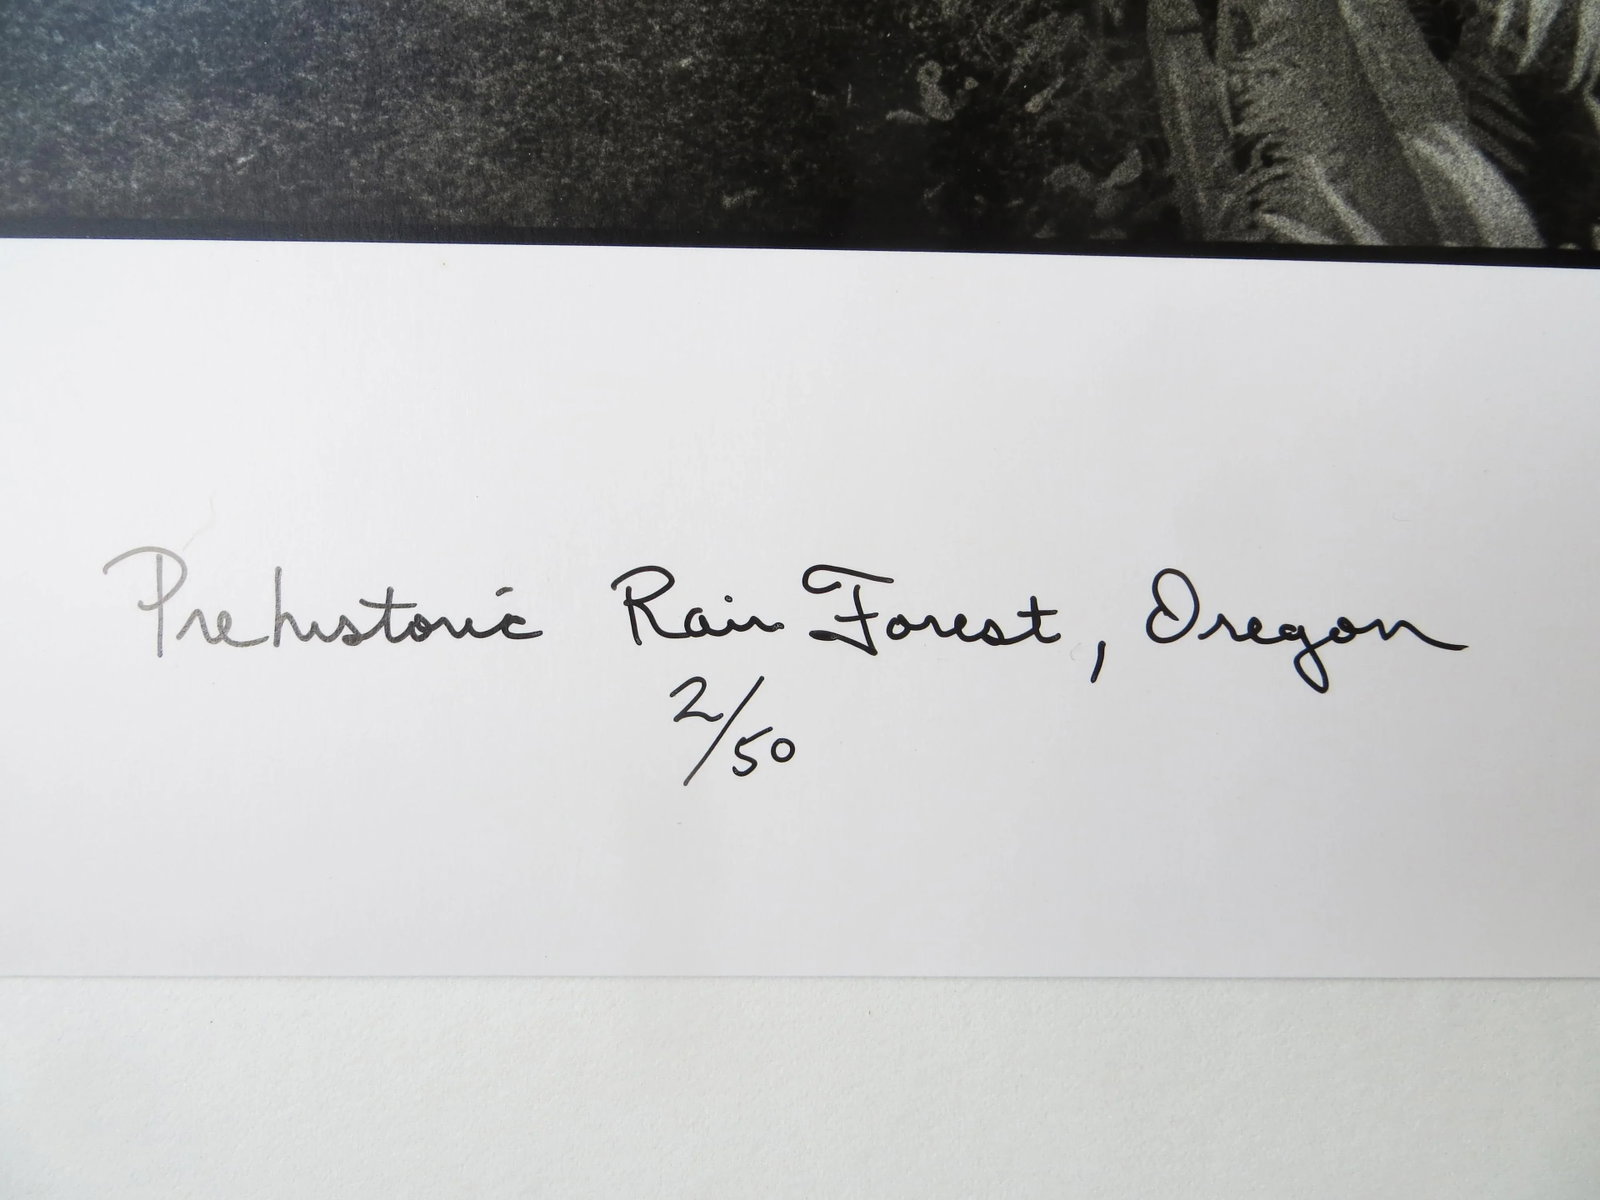 Prehistoric Rain Forest, Oregon
2/50